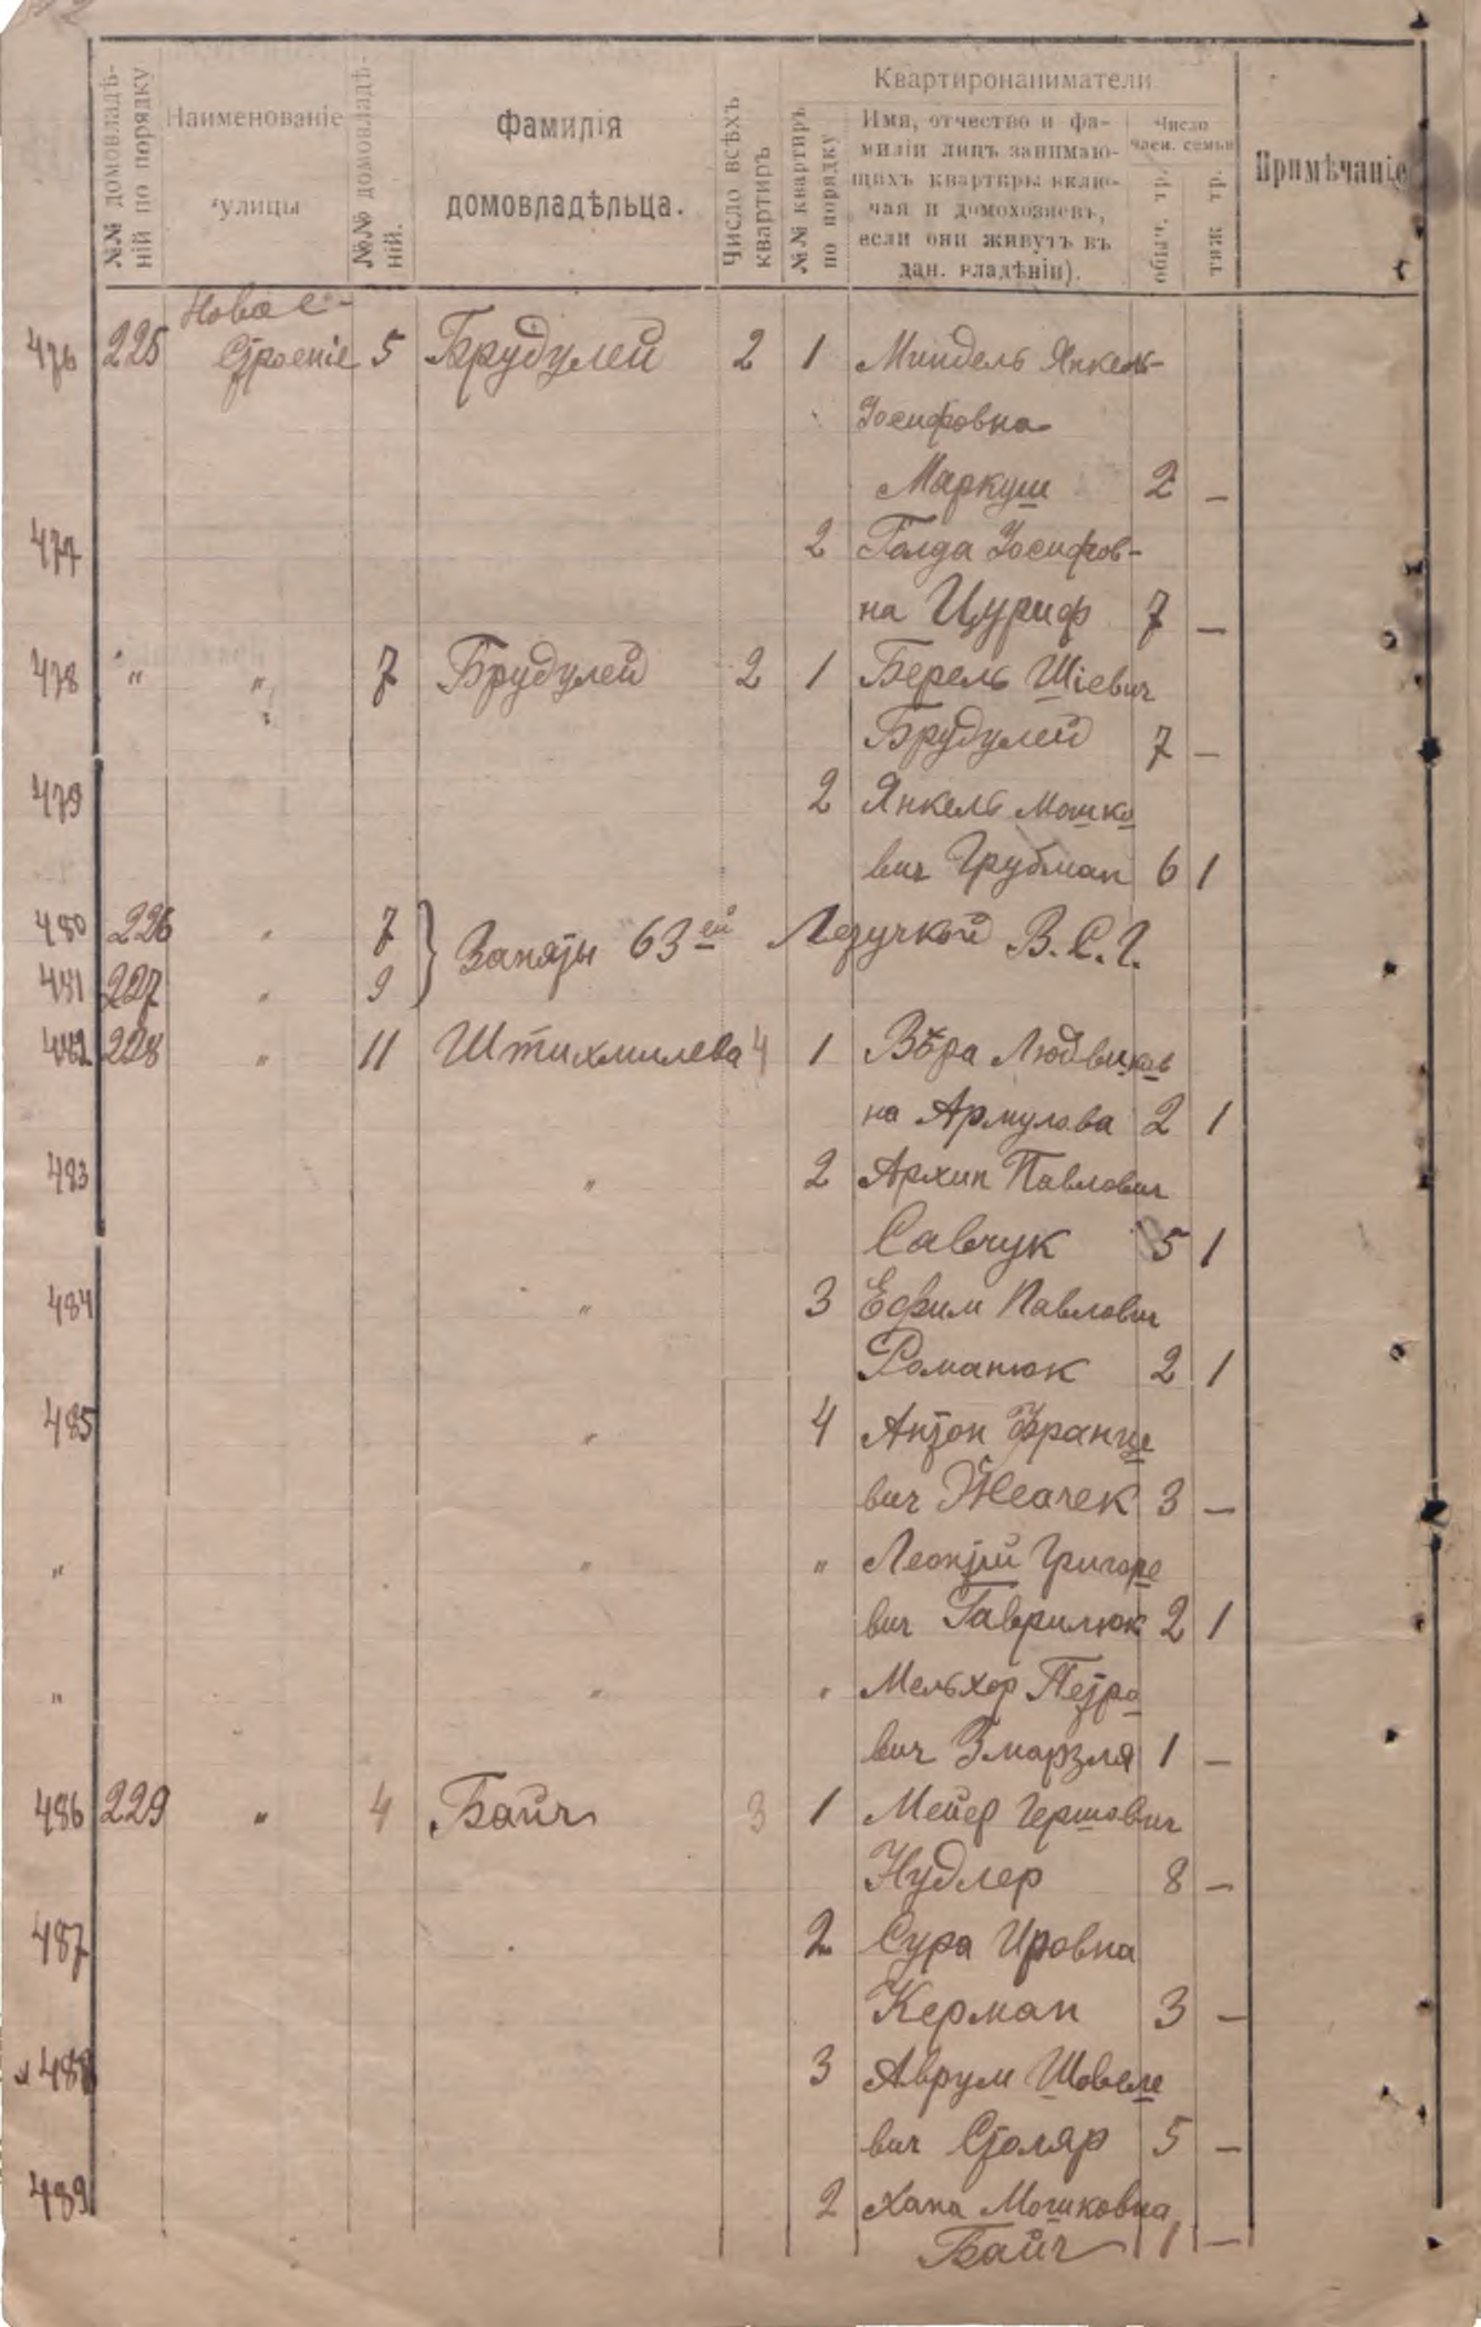 №№ домовладѣ-
ній по порядку
Наименованіе
улицы
№№ домовладѣ-
ній.
Фамилія
домовладѣльца.
Число всѣхъ
квартиръ
№№ квартиръ
по порядку
Квартиронаниматели
Имя, отчество и фа-
миліи лицъ занимаю-
щихъ квартиры вклю-
чая и домохозяевъ,
если они живутъ въ
дан. владѣніи).
Число
член. семьи
Примѣчаніе
Новое-
476 225 Строеніе 5 Брудулей 2 1 Миндель Янкель-
Іосифовна
Маркуш 2 —
477 2 Голда Іосифов-
на Цуриф 7 —
478 " " 7 Брудулей 2 1 Берель Шіевич
Брудулей 7 —
479 2 Янкель Мошко
вич Грубман 6 1
480 226 " 7 } Заняты 63ей В.С.Г.
481 227 " 9
482 228 " 11 Штихмилева 4 1 Вѣра Людвиков
на Армулова 2 1
483 " 2 Архип Павлович
Савчук 5 1
484 " 3 Ефим Павлович
Романюк 2 1
485 " 4 Антон Франце
вич 3 —
" " " Леонтій Григоре
вич Гаврилюк 2 1
" " " Мельхор Петро
вич Змарзля 1 —
486 229 " 4 Байч 3 1 Мейер Гершович
Нудлер 8 —
487 2 Сура Ировна
Керман 3 —
488 3 Аврум Шовеле
вич Столяр 5 —
489 2 Хана Мошковна
Байч 1 —